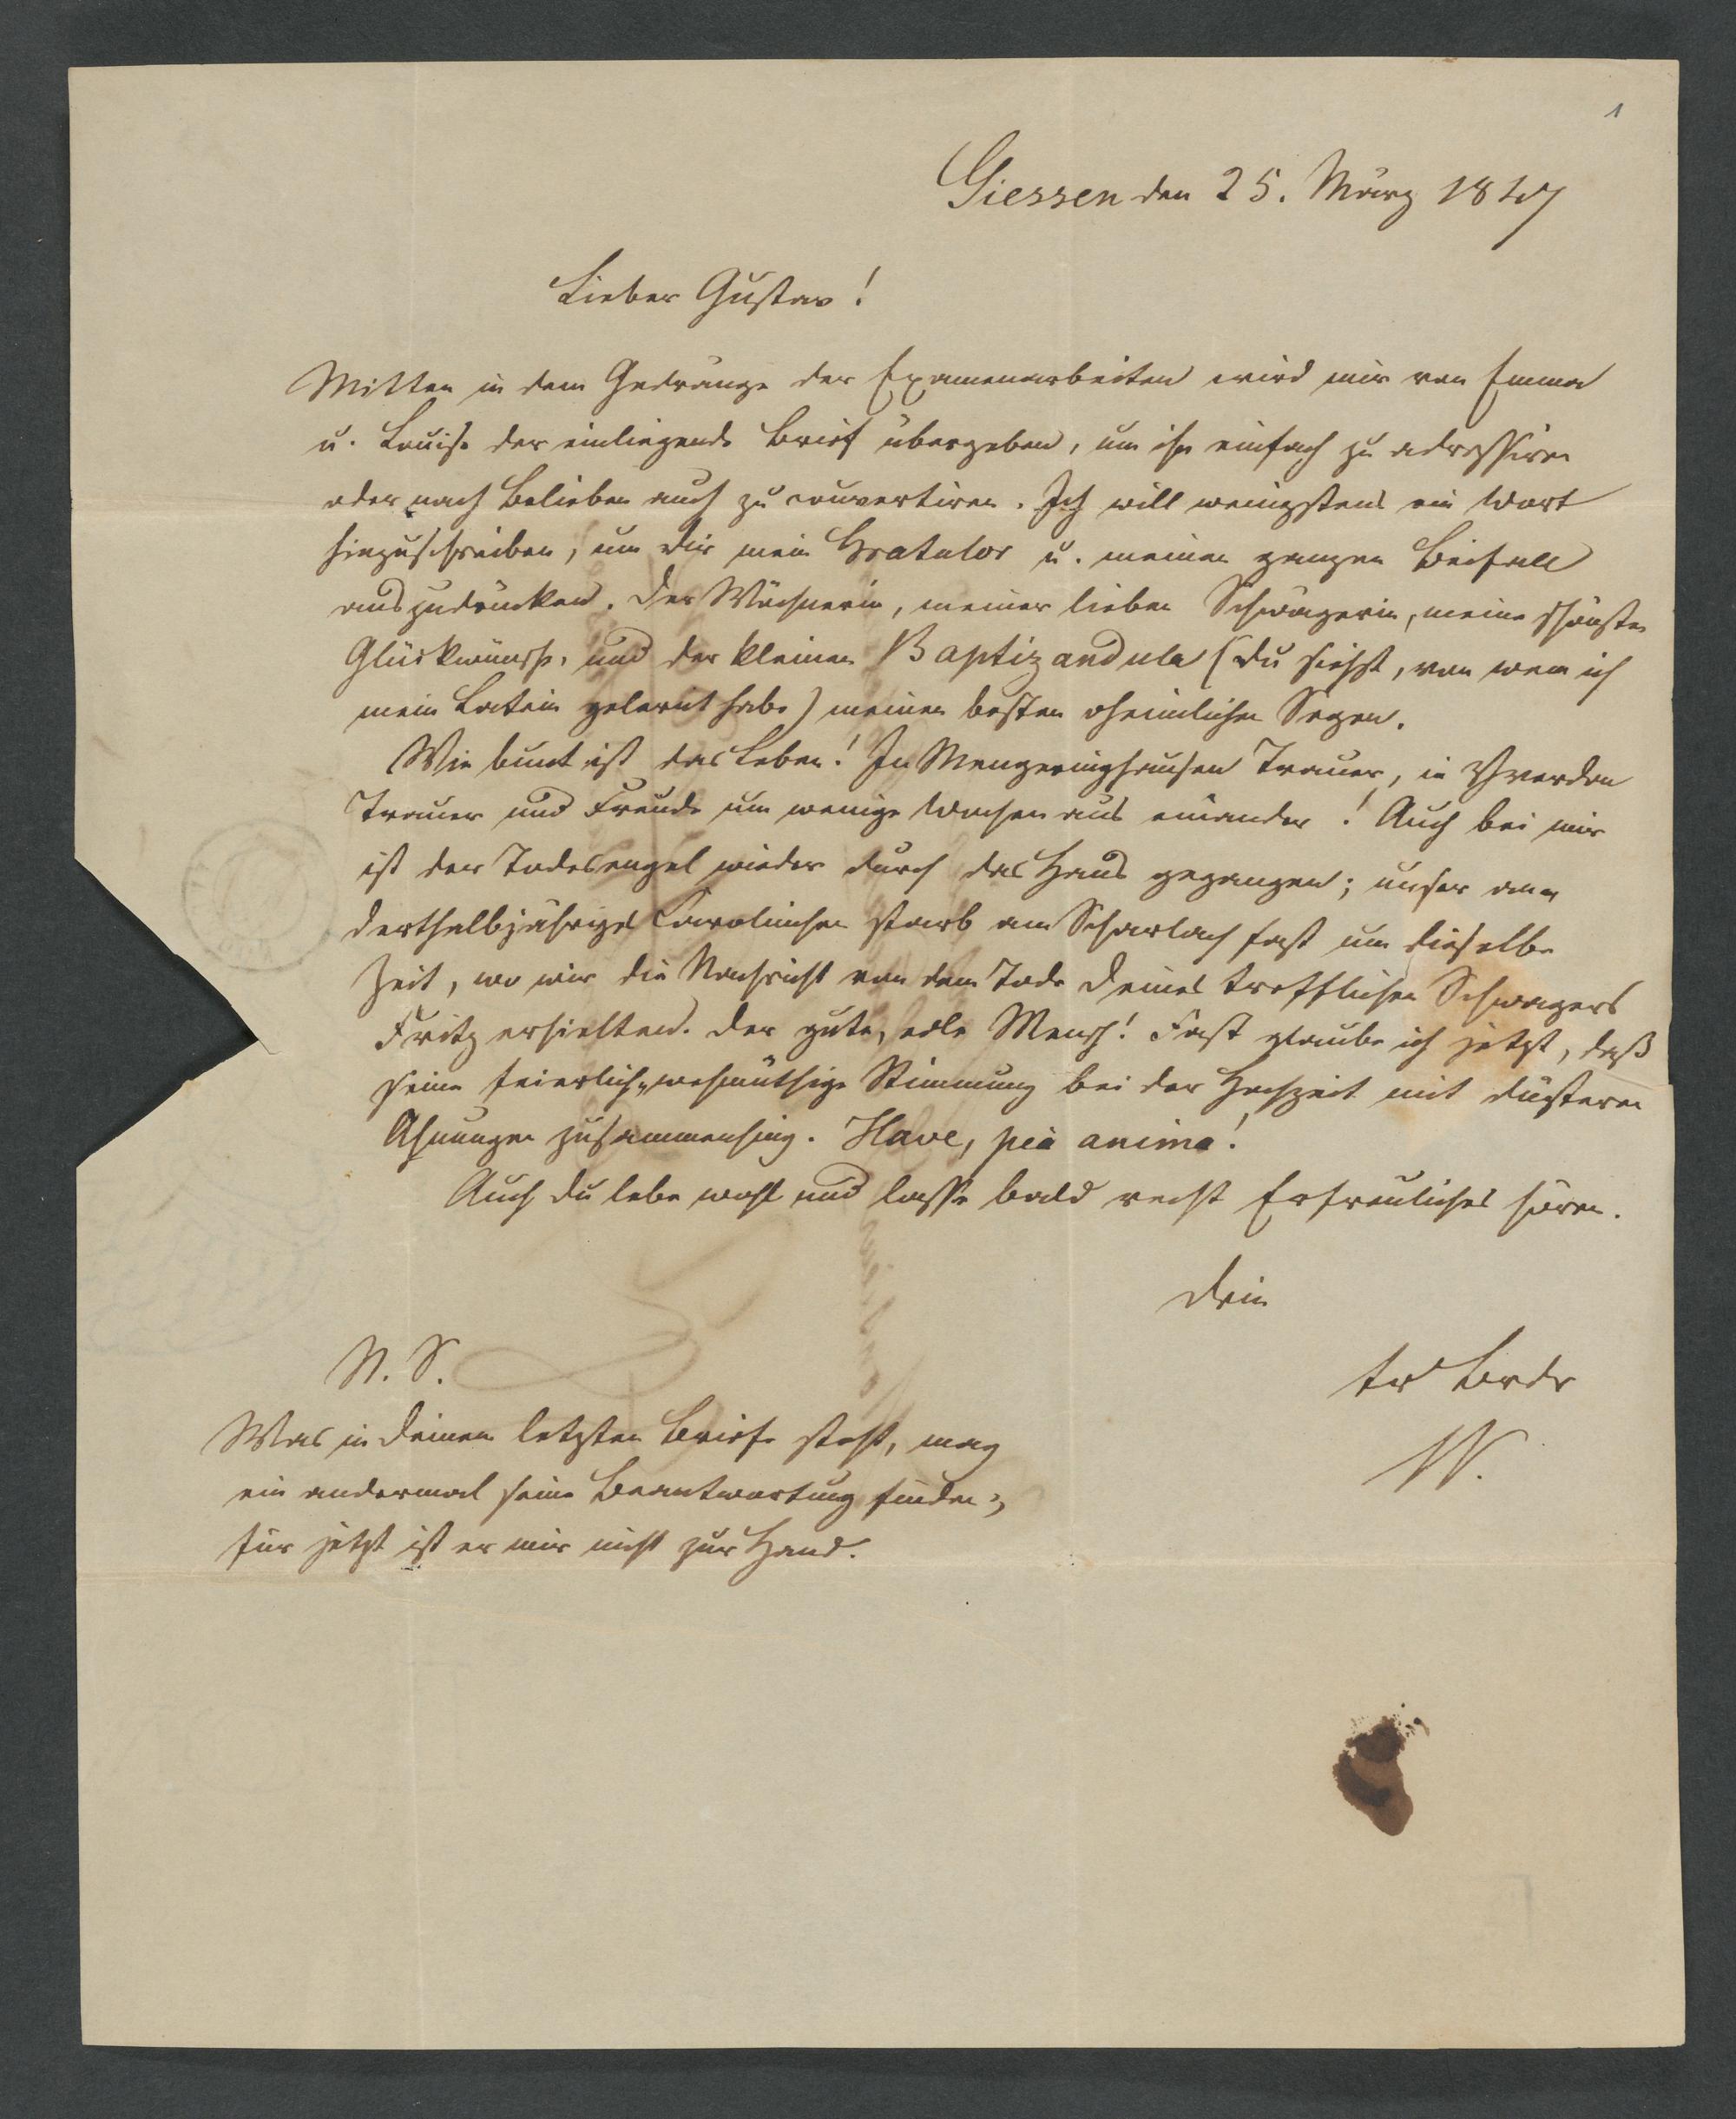 1
Giessen den 25. März 1847
Lieber Gustav!
Mitten in dem Gedränge der Examenarbeiten wird mir von Emma
u. Louise der einliegende Brief übergeben, um ihn einfach zu adressiren
oder nach Belieben auch zu couvertiren. Ich will wenigstens ein Wort
hinzuschreiben, um dir mein Gratulor u. meinen ganzen Beifall
auszudrücken. Der Wöchnerin, meiner lieben Schwägerin, meine schönsten
Glückwünsche, und der kleinen Baptizandula (du siehst, von wem ich
mein Latein gelernt habe) meinen besten oheimlichen Segen.
Wie bunt ist das Leben! In Mengeringhausen Trauer, in Yverdon
Trauer und Freude um wenige Wochen aus einander! Auch bei mir
ist der Todesengel wieder durch das Haus gegangen; unser an
derthalbjähriges Carolinchen starb am Scharlach fast um dieselbe
Zeit, wo wir die Nachricht von dem Tode deines trefflichen Schwagers
Fritz erhielten. Der gute, edle Mensch! Fast glaube ich jetzt, daß
seine feierlich-wehmüthige Stimmung bei der Hochzeit mit düsteren
Ahnungen zusammenhing. Have, pia anima!
Auch du lebe wohl und lasse bald recht Erfreuliches hören.
Dein
tr Brdr
W.
N. S.
Was in deinem letzten Briefe steht, mag
ein andermal seine Beantwortung finden;
für jetzt ist er mir nicht zur Hand.